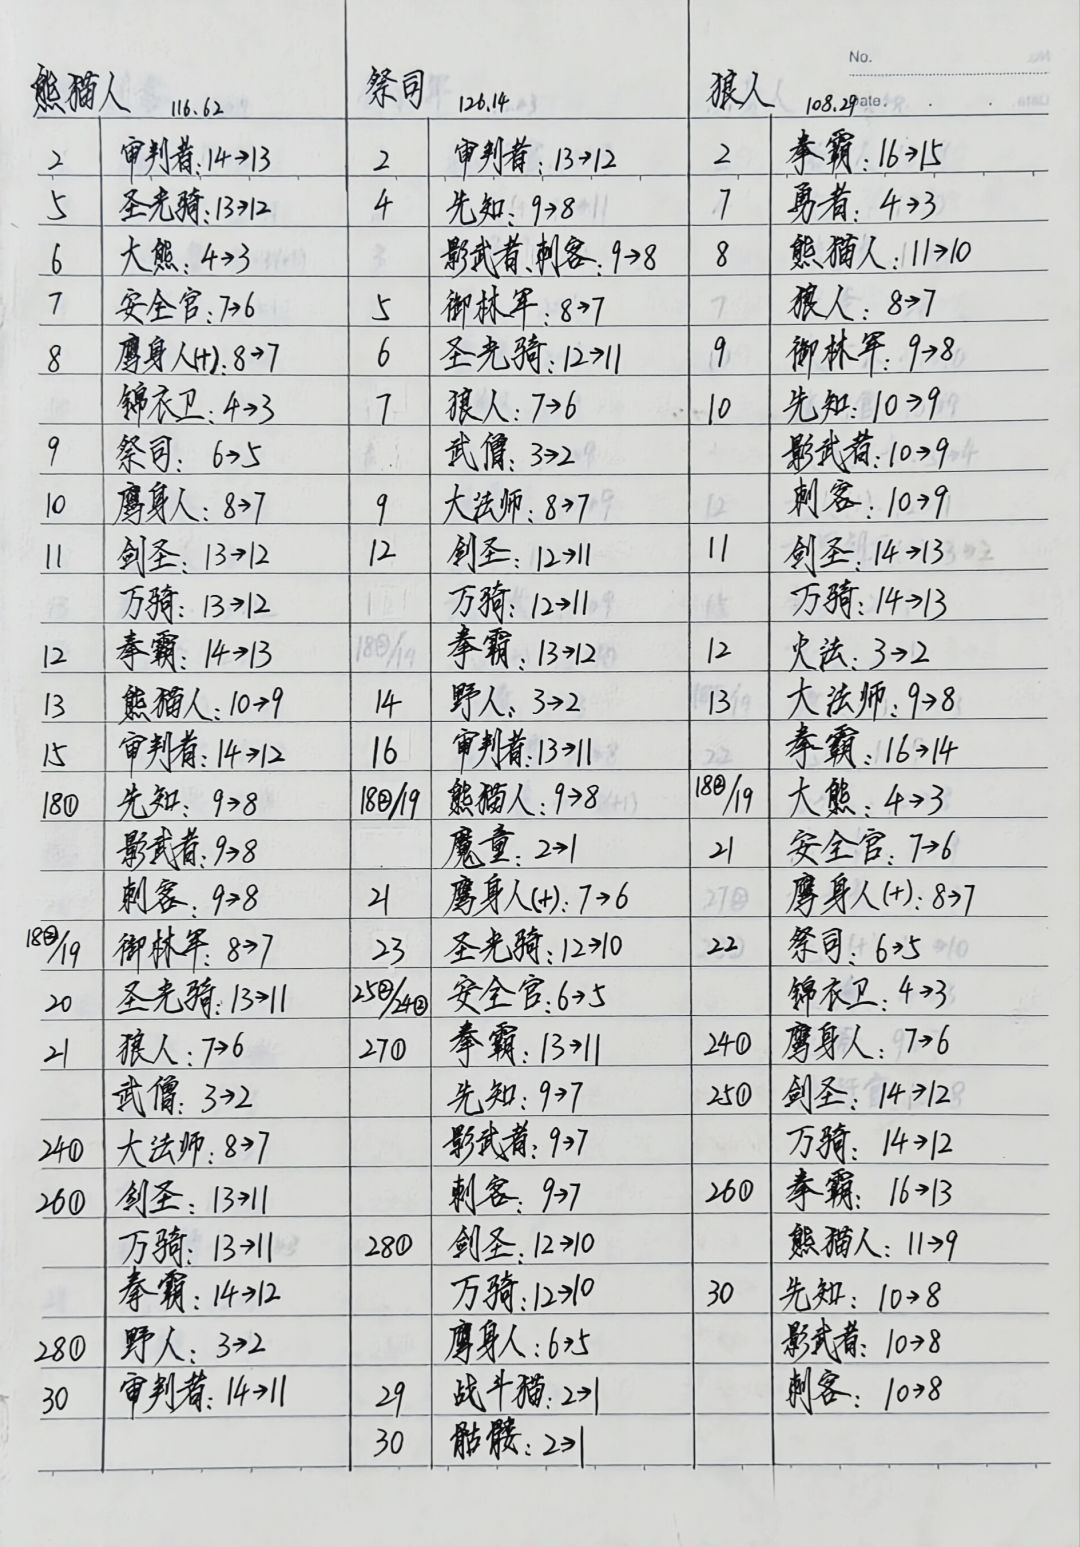 No.
熊猫人 116.62 祭司 126.14 狼人 108.29 Date.
2 审判者:14→13 2 审判者:13→12 2 拳霸:16→15
5 圣光骑:13→12 4 先知:9→8 7 勇者:4→3
6 大熊:4→3 影武者、刺客:9→8 8 熊猫人:11→10
7 安全官:7→6 5 御林军:8→7 狼人:8→7
8 鹰身人(+):8→7 6 圣光骑:12→11 9 御林军:9→8
锦衣卫:4→3 7 狼人:7→6 10 先知:10→9
9 祭司:6→5 武僧:3→2 影武者:10→9
10 鹰身人:8→7 9 大法师:8→7 刺客:10→9
11 剑圣:13→12 12 剑圣:12→11 11 剑圣:14→13
万骑:13→12 万骑:12→11 万骑:14→13
12 拳霸:14→13 拳霸:13→12 12 火法:3→2
13 熊猫人:10→9 14 野人:3→2 13 大法师:9→8
15 审判者:14→12 16 审判者:13→11 拳霸:16→14
18① 先知:9→8 18②/19 熊猫人:9→8 18②/19 大熊:4→3
影武者:9→8 魔童:2→1 21 安全官:7→6
刺客:9→8 21 鹰身人(+):7→6 鹰身人(+):8→7
18②/19 御林军:8→7 23 圣光骑:12→10 22 祭司:6→5
20 圣光骑:13→11 25②/24② 安全官:6→5 锦衣卫:4→3
21 狼人:7→6 27① 拳霸:13→11 24① 鹰身人:7→6
武僧:3→2 先知:9→7 25① 剑圣:14→12
24① 大法师:8→7 影武者:9→7 万骑:14→12
26① 剑圣:13→11 刺客:9→7 26① 拳霸:16→13
万骑:13→11 28① 剑圣:12→10 熊猫人:11→9
拳霸:14→12 万骑:12→10 30 先知:10→8
28① 野人:3→2 鹰身人:6→5 影武者:10→8
30 审判者:14→11 29 战斗猫:2→1 刺客:10→8
30 骷髅:2→1